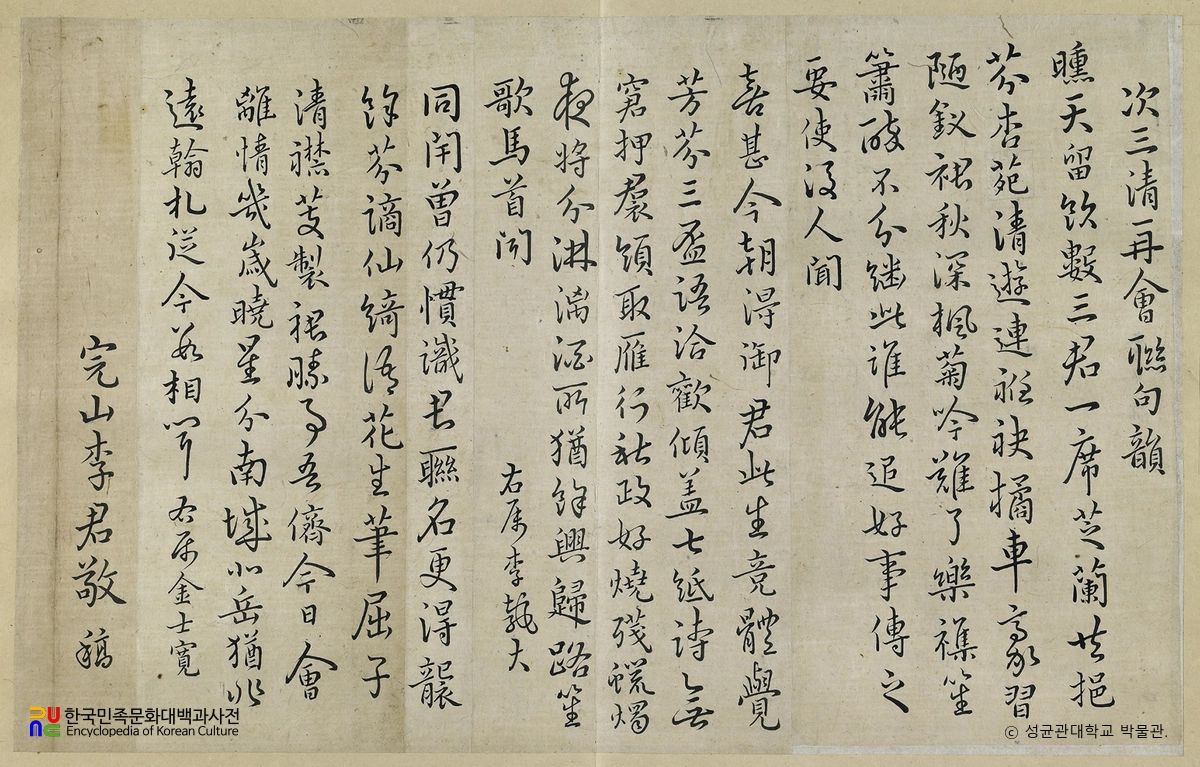 次三清再會聯句韻
曛天留飮數三君一席芝蘭共挹
芬杏苑清遊連袵袂橘車高習
陋釵裙秋深楓菊吟難了樂襍笙
簫酔不分繼此誰能追好事傳之
要使後人聞
喜甚今朝得御君此生竟體覺
芳芬三盃語洽歡傾盖七紙詩無
窘押裙領取雁行社政好燒殘蠟燭
夜將分淋漓酒所猶餘興歸路笙
歌馬首聞
右屬李執大
同閈曾仍慣識君聯名更得襲
餘芬謫仙綺語花生筆屈子
清襟芰製裙勝事吾儕今日會
離情幾歲曉星分南城北岳猶非
遠翰札從今若相聞 右屬金士寬
完山李君敬稿
한국민족문화대백과사전
Encyclopedia of Korean Culture
ⓒ 성균관대학교 박물관.